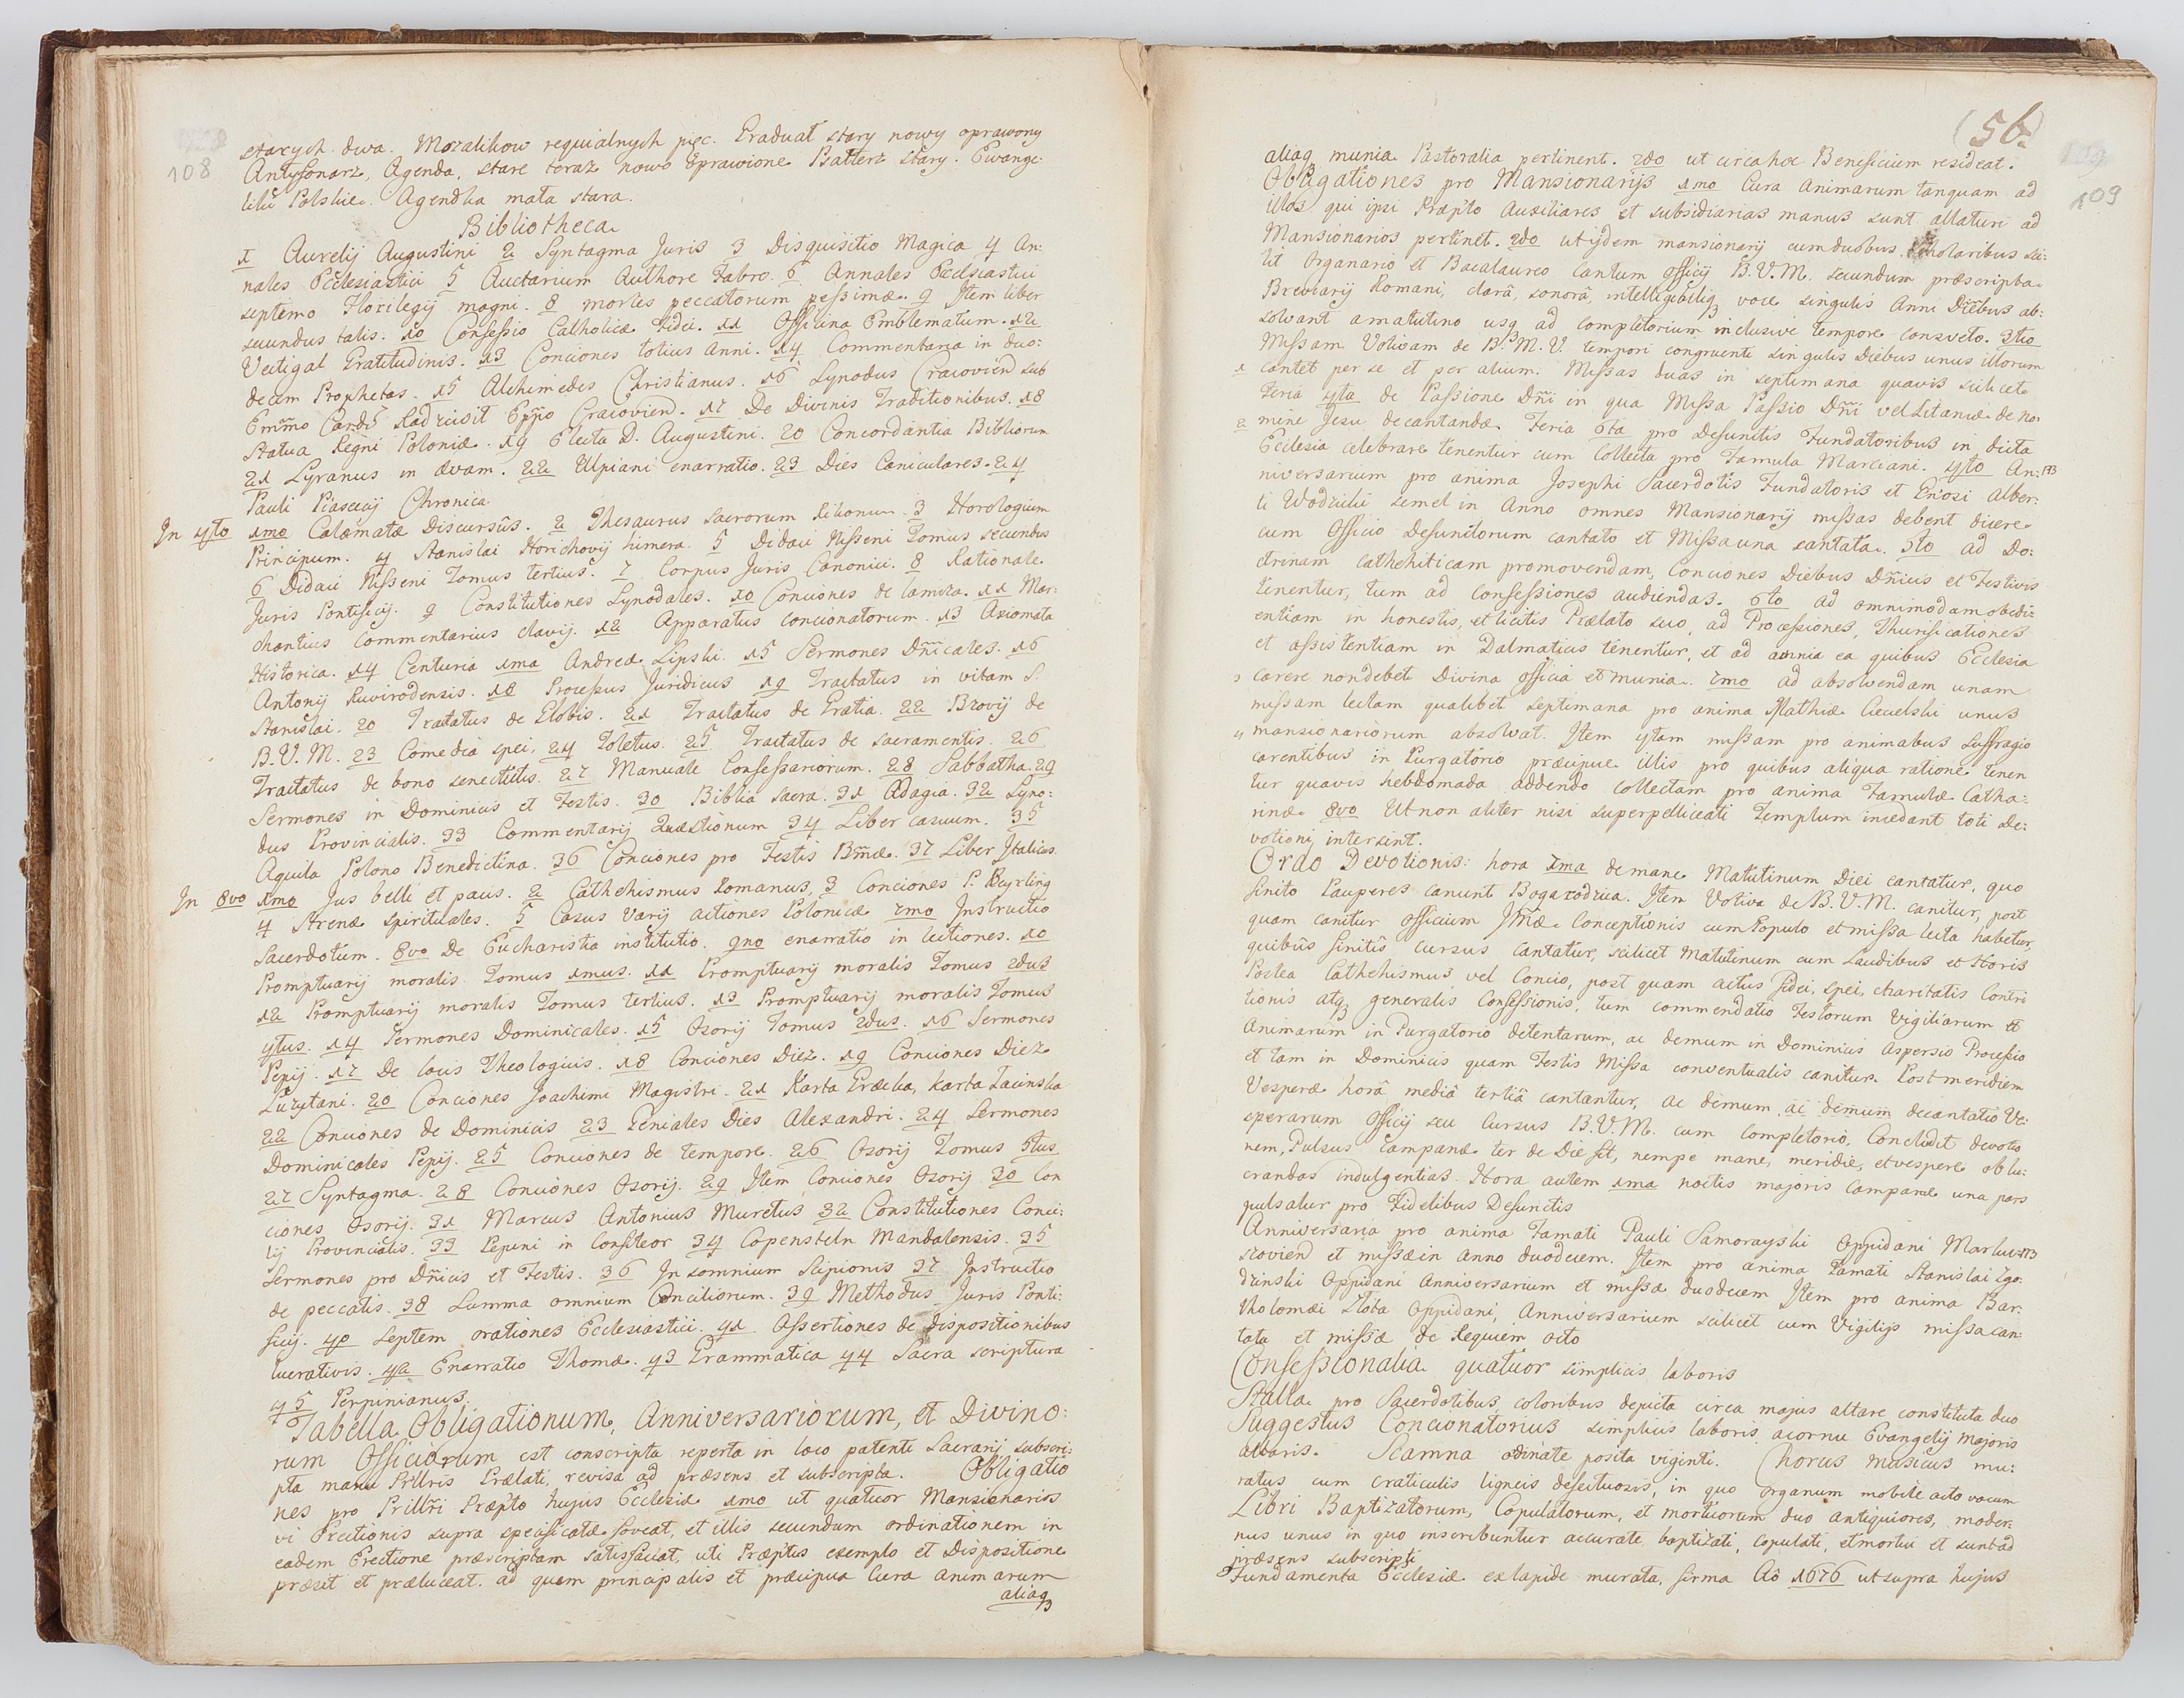 108
starych dwa. Mszalikow requialnych pięc. Graduał stary nowy oprawony
Antyfonarz, Agenda, stare teraz nowo oprawione Psałterz stary. Ewange:
liki Polskie. Agendka mała stara.
Bibliotheca
1 Aurelij Augustini 2 Syntagma Juris 3 Disquisitio Magica 4 An:
nales Ecclesiastici 5 Auctarium Authore Fabro. 6 Annales Ecclesiastici
septimo Florilegij magni. 8 mortes peccatorum pessimæ. 9 Item liber
secundus talis. 10 Confessio Catholicæ Fidei. 11 Officina Emblematum. 12
Vectigal Gratitudinis. 13 Conciones totius Anni. 14 Commentaria in duo:
decem Prophetas. 15 Alchimedes Christianus. 16 Synodus Cracovien sub
Emmo Cardi Radzivił Eppo Cracovien. 17 De Divinis Traditionibus. 18
Statua Regni Poloniæ. 19 Electa D. Augustini. 20 Concordantia Bibliorum
21 Lyranus in Evam. 22 Ulpiani enarratio. 23 Dies Caniculares. 24
Pauli Piascecij Chronica
In 4to 1mo Calamatæ Discursus. 2 Thesaurus sacrorum Rituum 3 Horologium
Principum. 4 Stanislai Horichovij himera. 5 Didaci Nisseni Tomus secundus
6 Didaci Nisseni Tomus tertius. 7 Corpus Juris Canonici. 8 Rationale
Juris Pontificij. 9 Constitutiones Synodales. 10 Conciones de lamiza. 11 Mar:
chantius Commentarius clavij. 12 Apparatus concionatorum. 13 Axiomata
Historica. 14 Centuria 1ma Andreæ Lipski. 15 Sermones Dnicales. 16
Antonij Ruvirodensis. 18 Processus Juridicus 19 Tractatus in vitam S.
Stanislai. 20 Tractatus de Globis. 21 Tractatus de Gratia. 22 Brovij de
B.V.M. 23 Comedia spei. 24 Toletus. 25 Tractatus de sacramentis. 26
Tractatus de bono senectutis. 27 Manuale Confessariorum. 28 Sabbatha. 29
Sermones in Dominicis et Festis. 30 Biblia sacra. 31 Adagia. 32 Syno:
dus Provincialis. 33 Commentarij Quæstionum 34 Liber casuum. 35
Aquila Polono Benedictina. 36 Conciones pro Festis Bmæ. 37 Liber Italicus
In 8vo 1mo Jus belli et pacis. 2 Cathehismus Romanus, 3 Conciones P. Beyrling
4 Strenæ spirituales. 5 Casus varij actiones Polonicæ 7mo Instructio
Sacerdotum. 8vo De Eucharistia institutio. 9no enarratio in lectiones. 10
Promptuarij moralis Tomus 1mus. 11 Promptuarij moralis Tomus 2dus
12 Promptuarij moralis Tomus tertius. 13 Promptuarij moralis Tomus
4tus. 14 Sermones Dominicales. 15 Osorij Tomus 2dus. 16 Sermones
Pepij. 17 De locis Theologicis. 18 Conciones Diez. 19 Conciones Diez
Luzytani. 20 Conciones Joachimi Magistri. 21 Karta Grecka, karta Łacinska
22 Conciones de Dominicis 23 Geniales Dies Alexandri. 24 Sermones
Dominicales Pepij. 25 Conciones de tempore. 26 Osorij Tomus 5tus
27 Syntagma. 28 Conciones Osorij. 29 Item Conciones Osorij 30 Con
ciones Osorij. 31 Marcus Antonius Muretus 32 Constitutiones Conci:
lij Provincialis. 33 Pepini in Confiteor 34 Copensteln Mandalensis. 35
Sermones pro Dnicis et Festis. 36 In somnium Scipionis 37 Instructio
de peccatis. 38 Summa omnium Conciliorum. 39 Methodus Juris Ponti:
ficij. 40 Septem orationes Ecclesiastici. 41 Assertiones de dispositionibus
lucrativis. 42 Enarratio Thomæ. 43 Grammatica 44 Sacra scriptura
45 Perpinianus.
Tabella Obligationum, Anniversariorum, et Divino:
rum Officiorum est conscripta reperta in loco patenti Sacrarij subscri:
pta manu Prllris Prælati, revisa ad præsens et subscripta. Obligatio
nes pro Prillri Præpto hujus Ecclesiæ 1mo ut quatuor Mansionarios
vi Erectionis supra specificatæ foveat, et illis secundum ordinationem in
eadem Erectione præscriptam satisfaciat, uti Præptus exemplo et Dispositione
præsit et præluceat. ad quem principalis et præcipua Cura animarum
aliaq3
(56.)
109
aliaq munia Pastoralia pertinent. 2do ut circa hoc Beneficium resideat.
Obligationes pro Mansionarijs 1mo Cura Animarum tanquam ad
illos qui ipsi Præpto Auxiliares et subsidiarias manus sunt allaturi ad
Mansionarios pertinet. 2do ut ijdem mansionarij cum duobus Scholaribus sci:
lit Organario et Bacalaureo Cantum Officij B.V.M. secundum præscripta
Breviarij Romani, clarâ, sonorâ, intelligibiliq3 voce singulis Anni Diebus ab:
solvant amatutino usq ad completorium inclusive tempore consveto. 3tio
Missam Votivam de B.M.V. tempori congruenti singulis Diebus unus illorum
1 cantet per se et per alium. Missas duas in septimana quavis scilicet
Feria 4ta de Passione Dni in qua Missa Passio Dni vel Litaniæ de no:
2 mine Jesu decantandæ Feria 6ta pro Defunctis Fundatoribus in dicta
Ecclesia celebrare tenentur cum Collecta pro Famula Marciani. 4to An:
niversarium pro anima Josephi Sacerdotis Fundatoris et Gnosi Alber:
ti Wodzicki semel in Anno omnes Mansionarij missas debent dicere
cum Officio Defunctorum cantato et Missa una cantata. 5to ad Do:
ctrinam Cathehiticam promovendam, Conciones Diebus Dnicis et Festivis
tenentur, tum ad confessiones audiendas. 6to ad omnimodam obedi:
entiam in honestis, et licitis Prælato suo, ad Processiones, Thurificationes
et assistentiam in Dalmaticis tenentur, et ad omnia ea quibus Ecclesia
3 carere non debet Divina officia et munia. 7mo ad absolvendam unam
missam lectam qualibet septimana pro anima Mathiæ unus
4 mansionariorum absolvat. Item 4tam missam pro animabus suffragio
carentibus in Purgatorio præcipue illis pro quibus aliqua ratione tenen
tur quavis hebdomada addendo collectam pro anima Famulæ Catha:
rinæ 8vo Ut non aliter nisi superpelliceati Templum incedant toti de:
votioni intersint.
Ordo Devotionis: hora 7ma demane Matutinum Diei cantatur, quo
finito Pauperes canunt Bogarodzica. Item Votiva de B.V.M. canitur, post
quam canitur officium Imæ Conceptionis cum Populo et missa lecta habetur
quibus finitis cursus cantatur, scilicet Matutinum cum Laudibus et Horis
Postea Cathehismus vel Concio, post quam actus fidei, spei, charitatis Contri
tionis atq3 generalis Confessionis, tum commendatio Festorum Vigiliarum et
Animarum in Purgatorio detentarum, ac demum in Dominicis Aspersio Processio
et tam in Dominicis quam Festis Missa conventualis canitur. Post meridiem
Vesperæ horâ mediâ tertiâ cantantur, ac demum ac demum decantatio Ve:
sperarum Officij seu Cursus B.V.M. cum Completorio, Concludit devotio
nem, Pulsus Campanæ ter de Die fit, nempe mane, meridie, et vespere ob lu:
crandas indulgentias. Hora autem 1ma noctis majoris Campanæ una pars
pulsatur pro Fidelibus Defunctis
Anniversaria pro anima Famati Pauli Samorayski Oppidani
scovien et missæ in anno duodecem. Item pro anima Famati Stanislai Zgo:
dzinski Oppidani Anniversarium et missæ duodecem Item pro anima Bar:
tholomæi Słota Oppidani, Anniversarium scilicet cum Vigilijs missa can:
tata et missæ de Requiem octo
Confessionalia quatuor simplicis laboris
Stalla pro Sacerdotibus coloribus depicta circa majus altare constituta duo
Suggestus Concionatorius simplicis laboris acornu Evangelij Majoris
altaris. Scamna ordinate posita viginti. Chorus musicus mu:
ratus cum craticulis ligneis defectuosis, in quo organum mobile octo vocum
Libri Baptizatorum, Copulatorum, et mortuorum duo antiquiores, moder:
nus unus in quo inscribuntur accurate baptizati, copulati, et mortui et sunt ad
præsens subscripti
Fundamenta Ecclesiæ ex lapide murata, firma Aô 1676 ut supra hujus